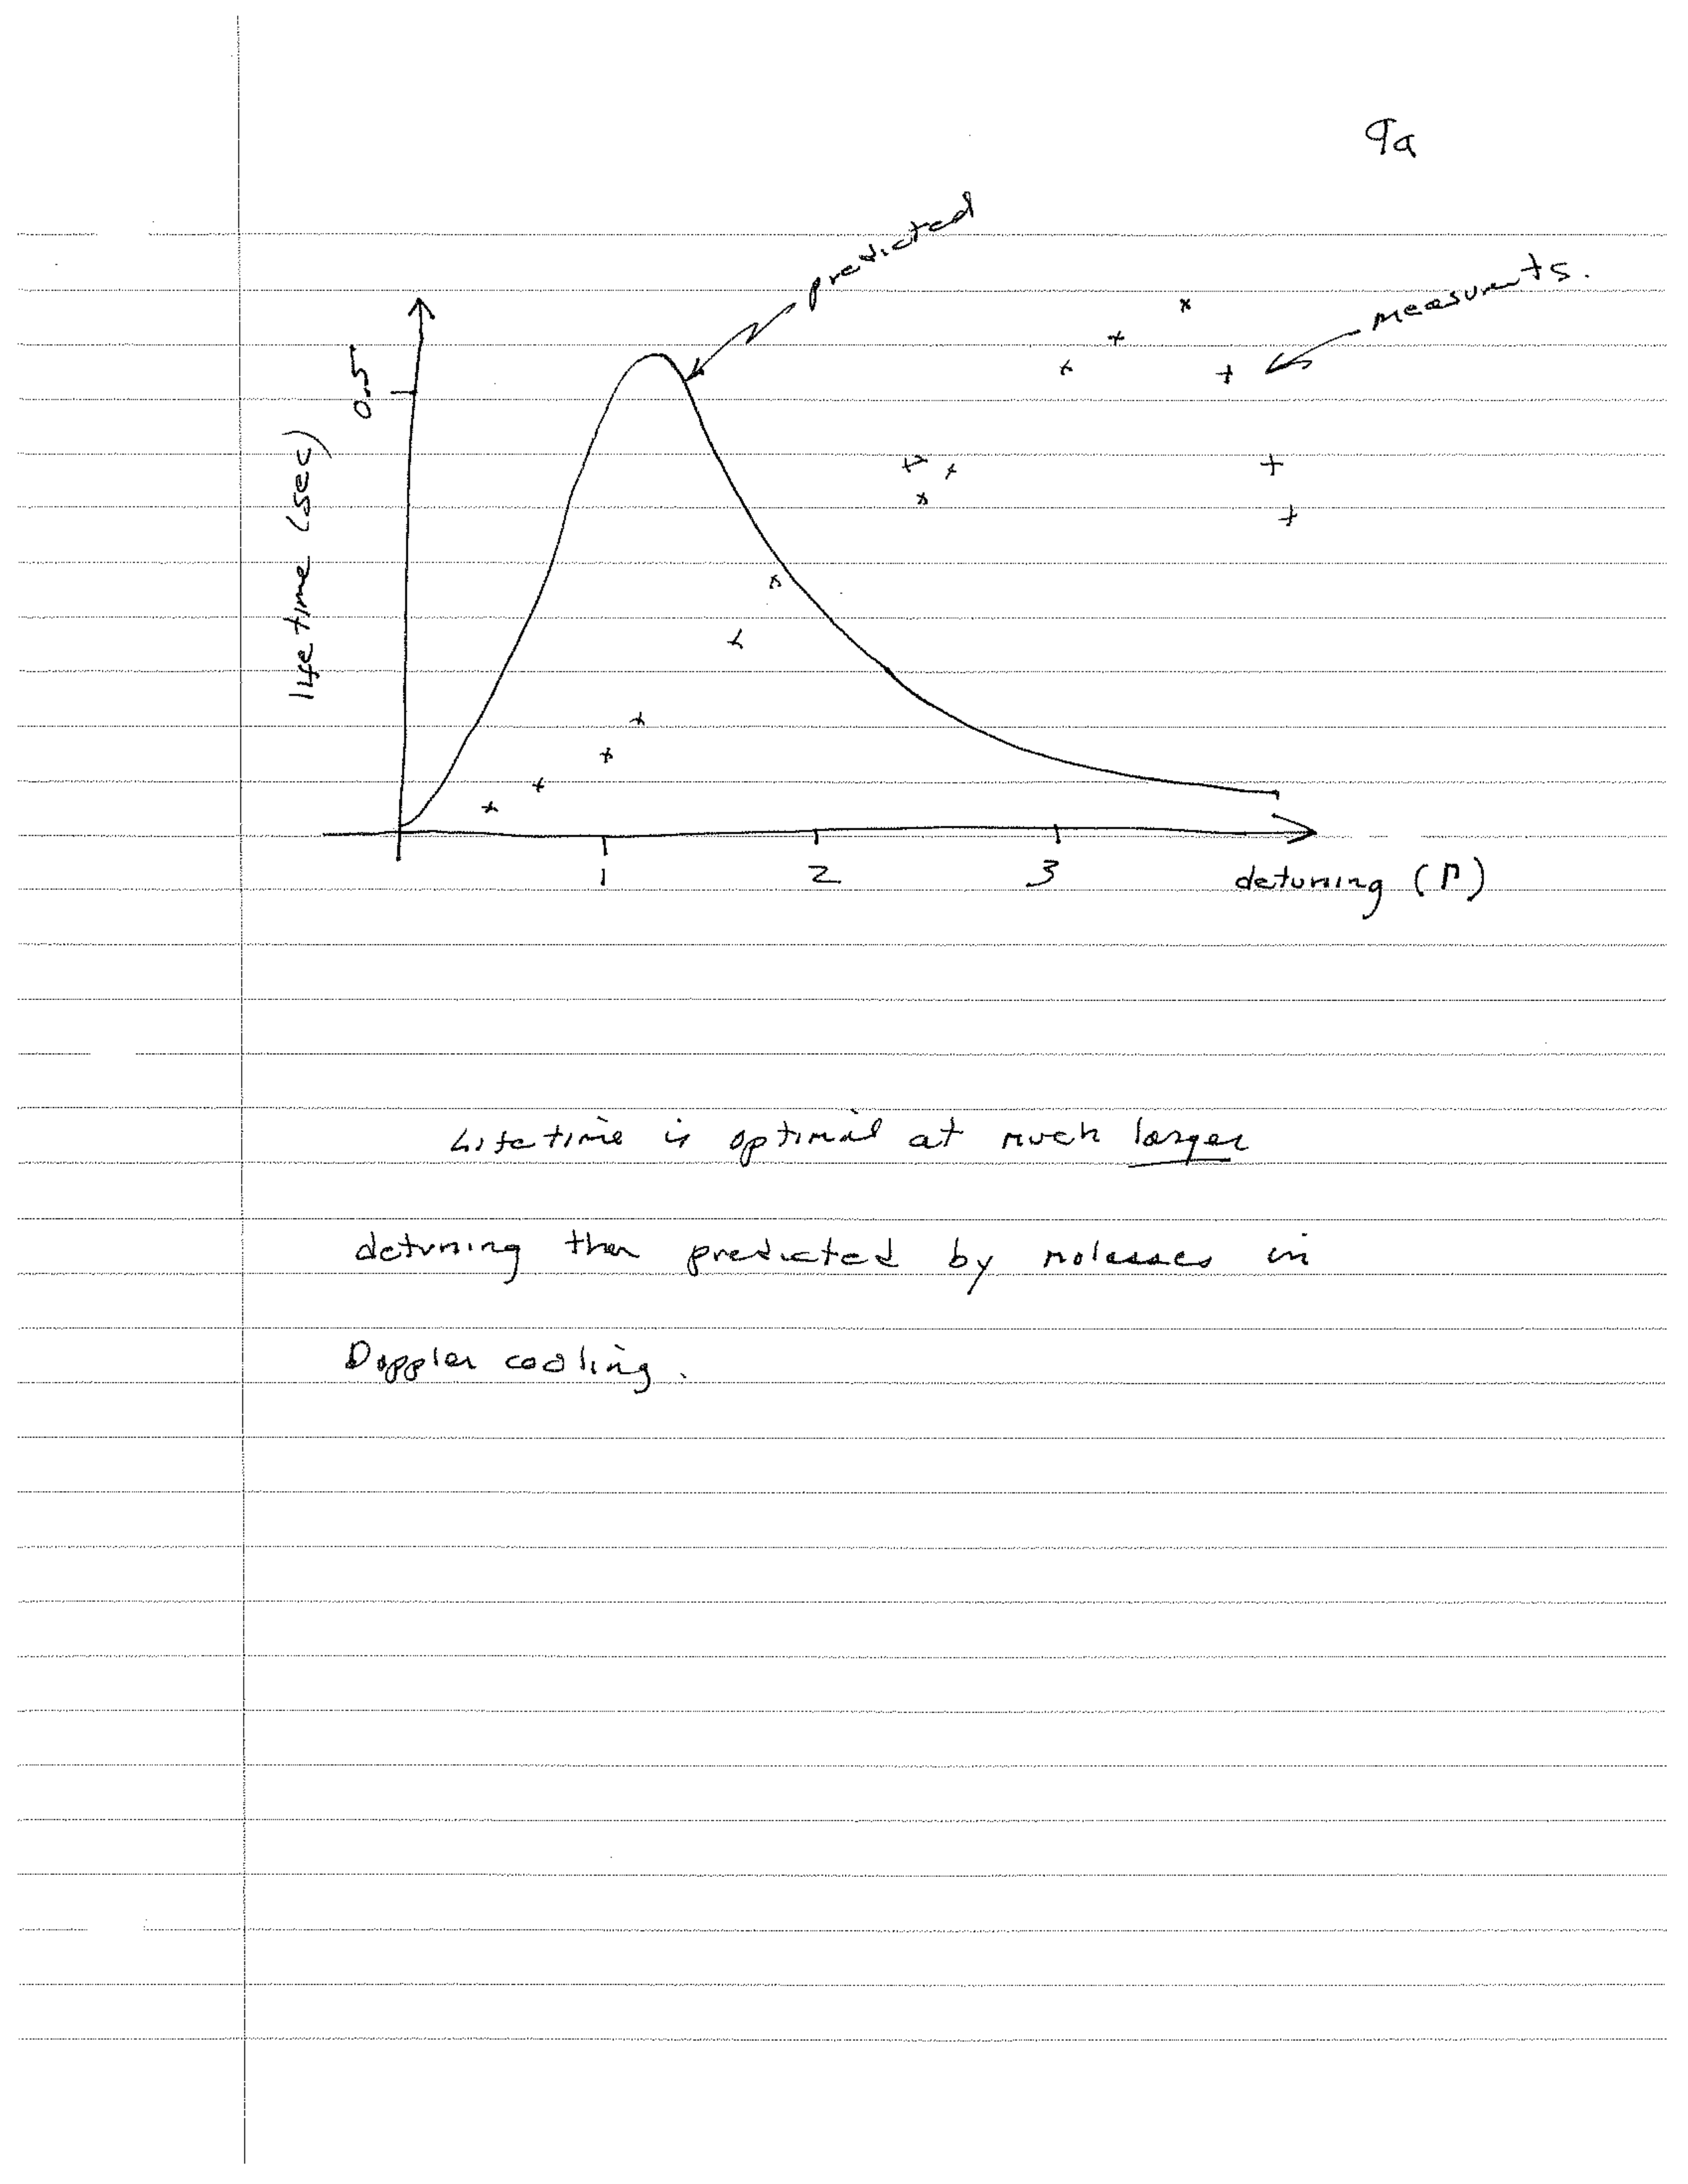 9a
predicted
measurments.
0.5
lifetime (sec)
1 2 3
detuning (Γ)
Lifetime is optimal at much larger
detuning than predicted by molasses in
Doppler cooling.